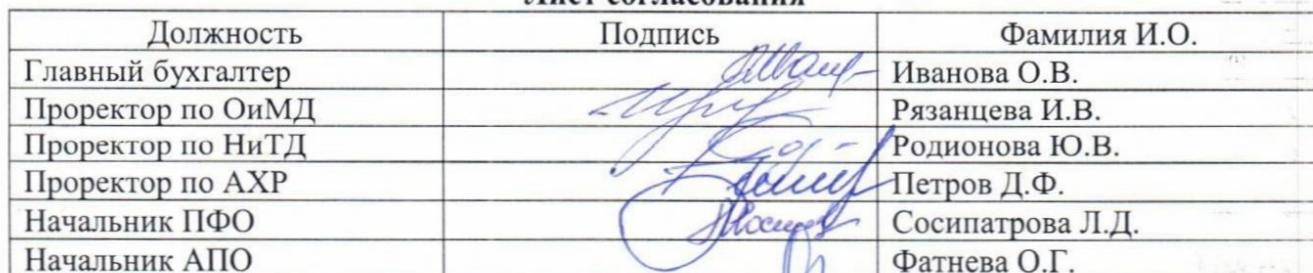 Лист согласования
Должность Подпись Фамилия И.О.
Главный бухгалтер Иванова О.В.
Проректор по ОиМД Рязанцева И.В.
Проректор по НиТД Родионова Ю.В.
Проректор по АХР Петров Д.Ф.
Начальник ПФО Сосипатрова Л.Д.
Начальник АПО Фатнева О.Г.